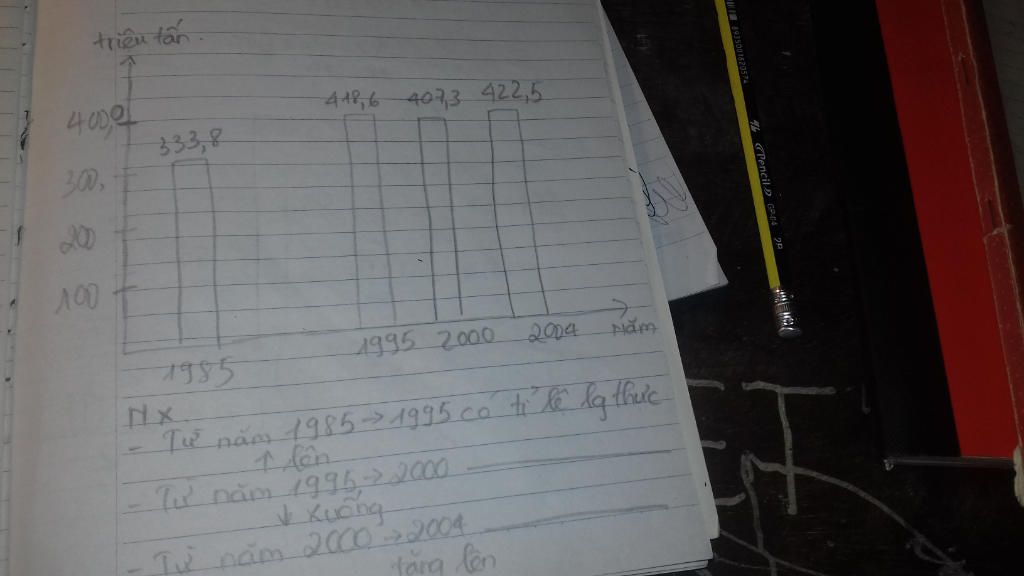 triệu tấn.
400,0
300,
200
100
333,8
418,6
407,3
422,5
1985
1995
2000
2004
năm
Nx
- Từ năm 1985→1995 có tỉ lệ lg thực
↑ lên
- Từ năm 1995→2000
↓ xuống
- Từ năm 2000→2004
tăng lên
8935001820574
Pencil
2B